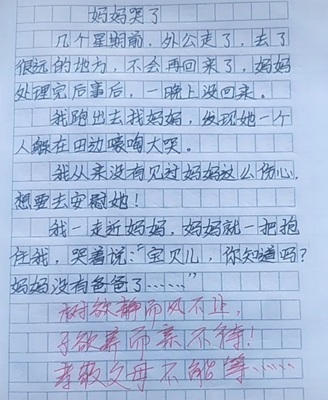 妈妈哭了
几个星期前，外公走了，去了
很远的地方，不会再回来了，妈妈
处理完后事后，一晚上没回来。
我跑出去找妈妈，发现她一个
人躲在田边嚎啕大哭。
我从来没有见过妈妈这么伤心，
想要去安慰她！
我一走近妈妈，妈妈就一把抱
住我，哭着说：“宝贝儿，你知道吗？
妈妈没有爸爸了……”
树欲静而风不止，
子欲养而亲不待！
孝敬父母不能等……